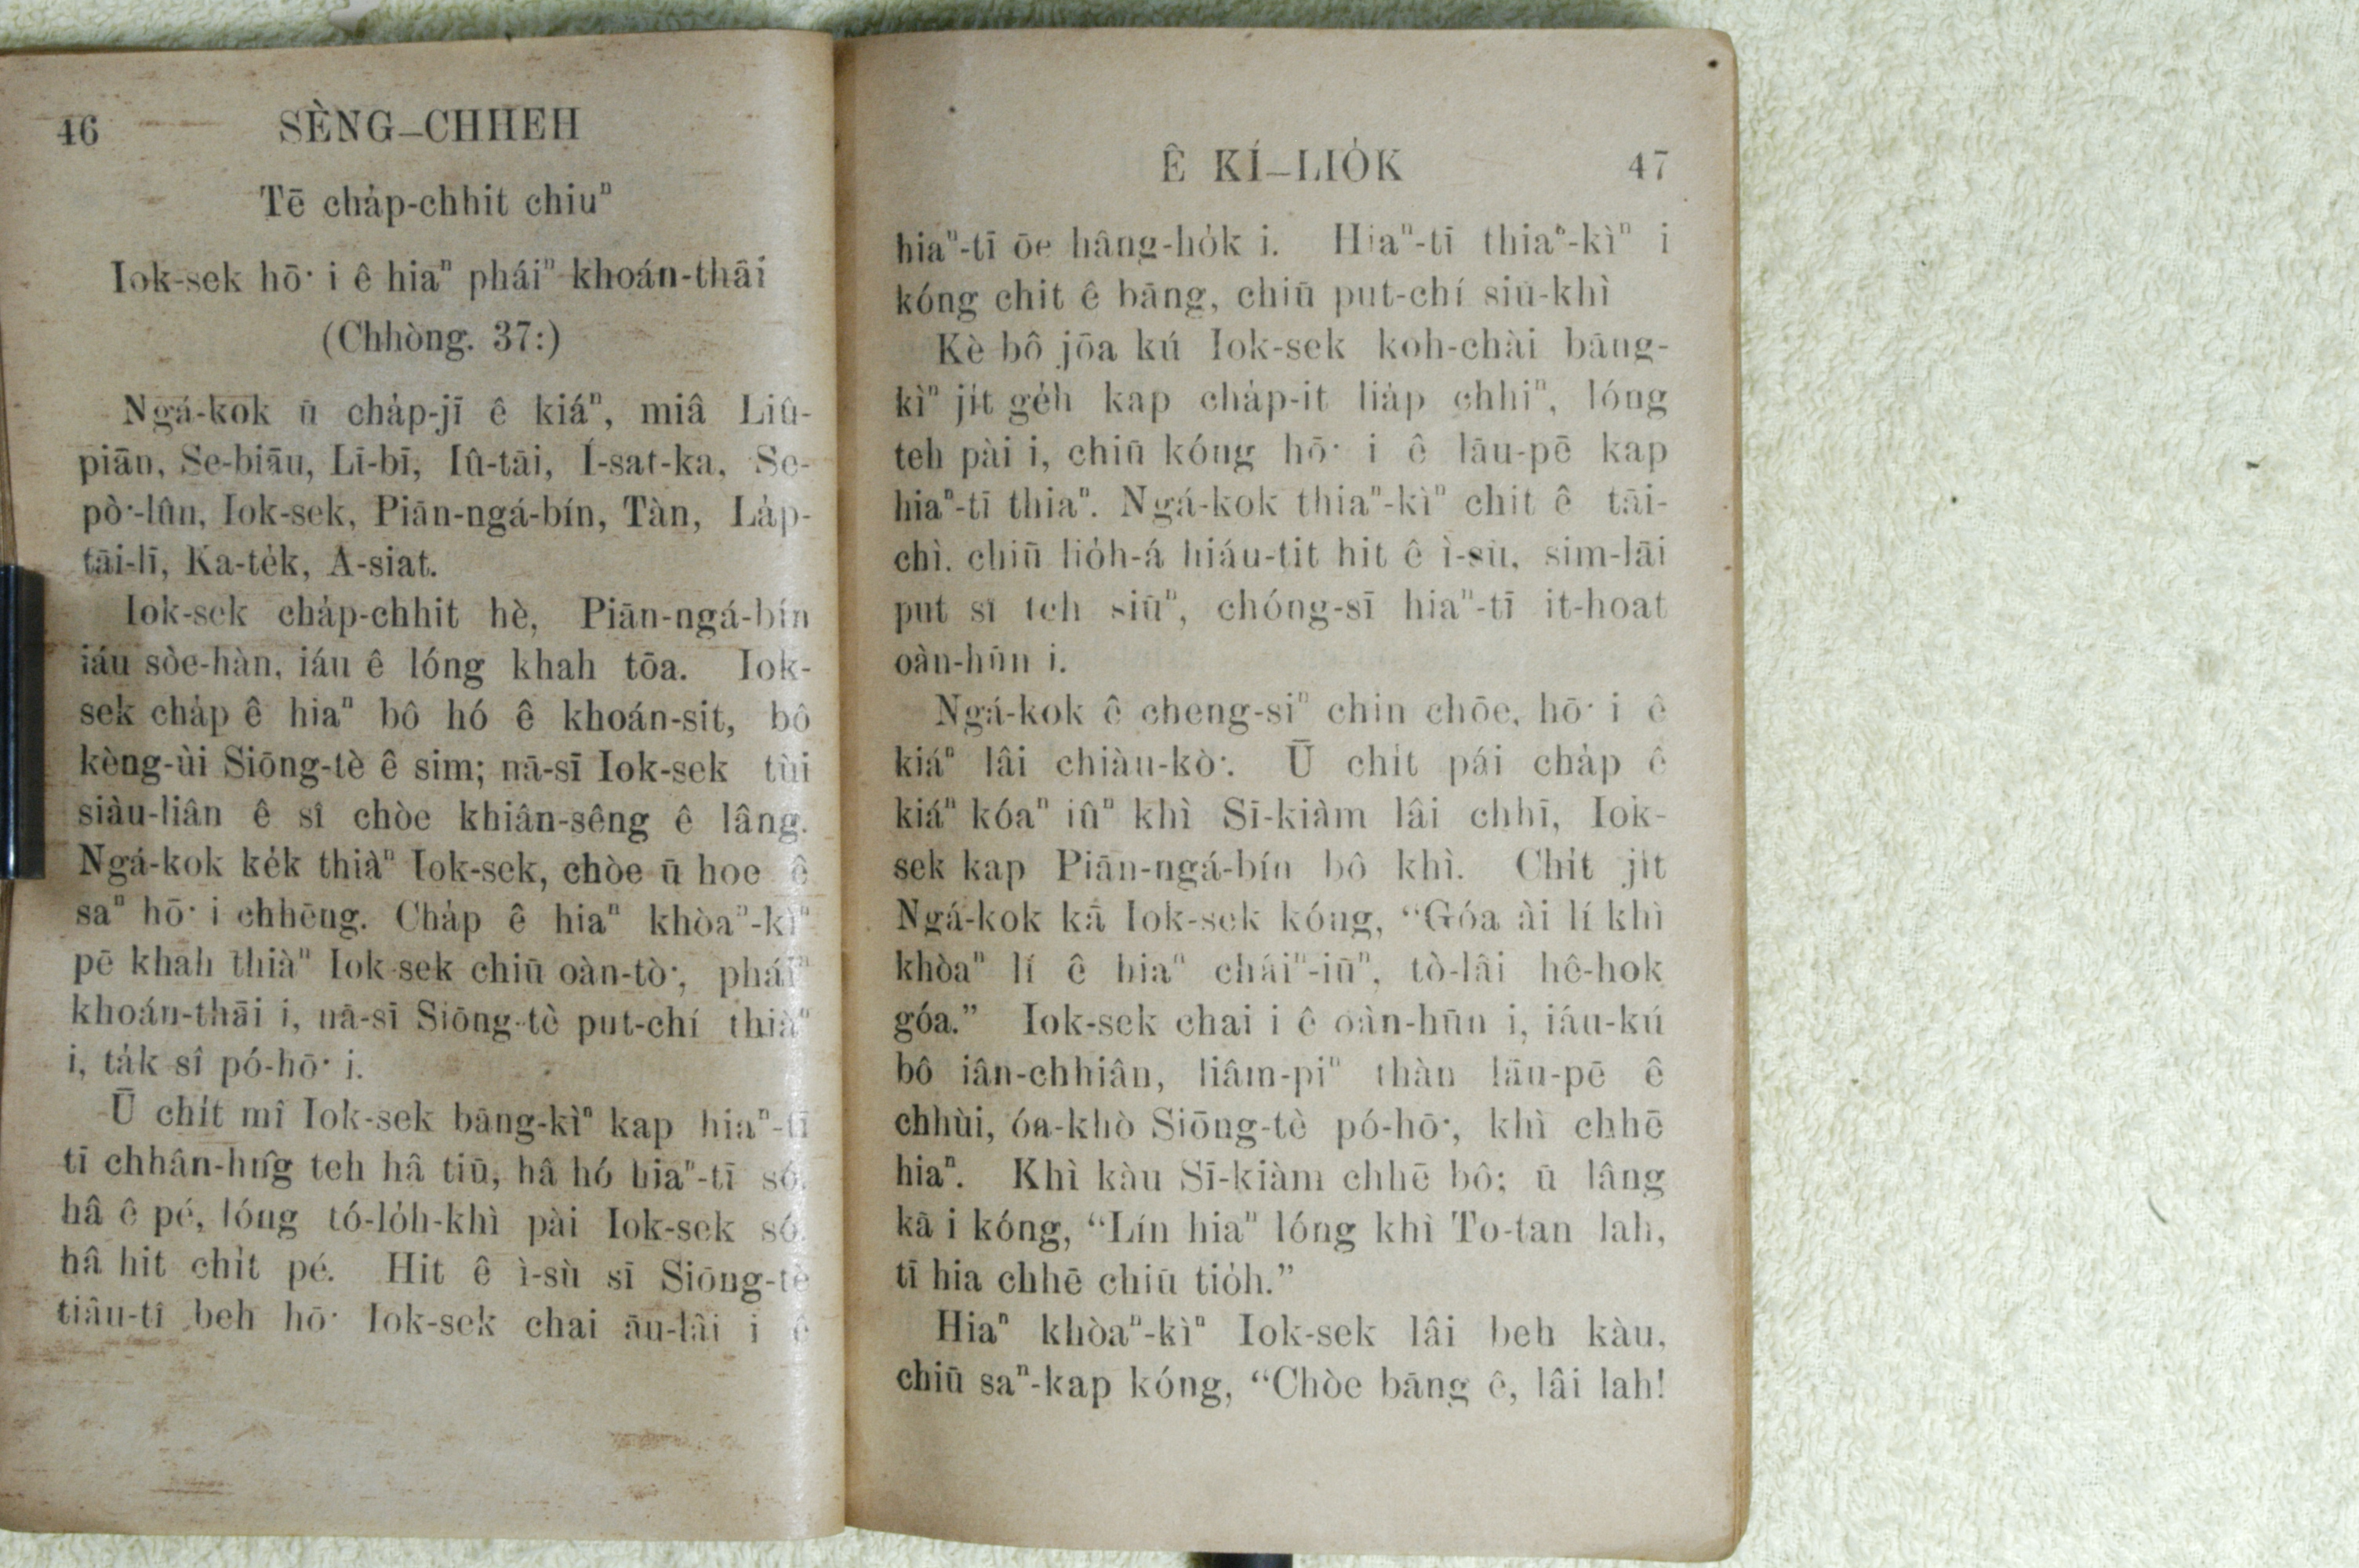 46 SÈNG-CHHEH
Tē cha̍p-chhit chiuⁿ
Iok-sek hō͘ i ê hiaⁿ pháiⁿ khoán-thāi
(Chhòng. 37:)
Ngá-kok ū cha̍p-jī ê kiáⁿ, miâ Liû-
piān, Se-biāu, Lī-bī, Iû-tāi, Í-sat-ka, Se-
pò͘-lûn, Iok-sek, Piān-ngá-bín, Tàn, La̍p-
tāi-lī, Ka-te̍k, A-siat.
Iok-sek cha̍p-chhit hè, Piān-ngá-bín
iáu sòe-hàn, iáu ê lóng khah tōa. Iok-
sek cha̍p ê hiaⁿ bô hó ê khoán-sit, bô
kèng-ùi Siōng-tè ê sim; nā-sī Iok-sek tùi
siàu-liân ê sî chòe khiân-sêng ê lâng.
Ngá-kok ke̍k thiàⁿ Iok-sek, chòe ū hoe ê
saⁿ hō͘ i chhēng. Cha̍p ê hiaⁿ khòaⁿ-kìⁿ
pē khah thiàⁿ Iok-sek chiū oàn-tò͘, pháiⁿ
khoán-thāi i, nā-sī Siōng-tè put-chí thiàⁿ
i, ta̍k sî pó-hō͘ i.
Ū chi̍t mî Iok-sek bāng-kìⁿ kap hiaⁿ-tī
tī chhân-hn̂g teh hâ tiū, hâ hó hiaⁿ-tī só͘
hâ ê pé, lóng tó-lo̍h-khì pài Iok-sek só͘
hâ hit chi̍t pé. Hit ê ì-sù sī Siōng-tè
tiâu-tî beh hō͘ Iok-sek chai āu-lâi i ê
Ê KÍ-LIO̍K 47
hiaⁿ-tī ōe hâng-ho̍k i. Hiaⁿ-tī thiaⁿ-kìⁿ i
kóng chit ê bāng, chiū put-chí siū-khì
Kè bô jōa kú Iok-sek koh-chài bāng-
kìⁿ ji̍t ge̍h kap cha̍p-it lia̍p chhiⁿ, lóng
teh pài i, chiū kóng hō͘ i ê lāu-pē kap
hiaⁿ-tī thiaⁿ. Ngá-kok thiaⁿ-kìⁿ chit ê tāi-
chì. chiū lio̍h-á hiáu-tit hit ê ì-sù, sim-lāi
put sî teh siūⁿ, chóng-sī hiaⁿ-tī it-hoat
oàn-hūn i.
Ngá-kok ê cheng-siⁿ chin chōe, hō͘ i ê
kiáⁿ lâi chiàu-kò͘. Ū chi̍t pái cha̍p ê
kiáⁿ kóaⁿ iûⁿ khì Sī-kiàm lâi chhī, Iok-
sek kap Piān-ngá-bín bô khì. Chi̍t ji̍t
Ngá-kok kā Iok-sek kóng, “Góa ài lí khì
khòaⁿ lí ê hiaⁿ cháiⁿ-iūⁿ, tò-lâi hê-hok
góa.” Iok-sek chai i ê oàn-hūn i, iáu-kú
bô iân-chhiân, liâm-piⁿ thàn lāu-pē ê
chhùi, óa-khò Siōng-tè pó-hō͘, khì chhē
hiaⁿ. Khì kàu Sī-kiàm chhē bô; ū lâng
kā i kóng, “Lín hiaⁿ lóng khì To-tan lah,
tī hia chhē chiū tio̍h.”
Hiaⁿ khòaⁿ-kìⁿ Iok-sek lâi beh kàu,
chiū saⁿ-kap kóng, “Chòe bāng ê, lâi lah!